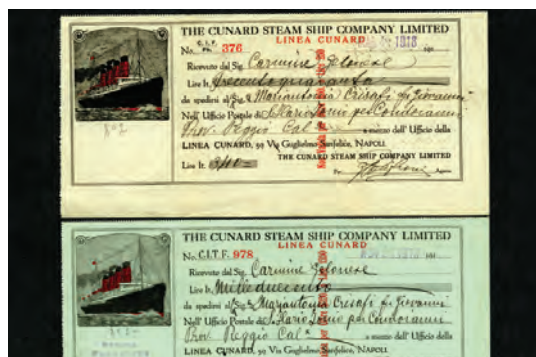 THE CUNARD STEAM SHIP COMPANY LIMITED
LINEA CUNARD
No. C.I.T.F. 376 1918 191
Ricevute dal Sig. Carmine
Lire It. trecentoquaranta
da spedirsi al Sig. Mariantonia Crisafi fu Giovanni
Nell' Ufficio Postale di S. Ilario Jonio per Condoianni
Prov. Reggio Cal. a mezzo dell' Ufficio della
LINEA CUNARD, 59 Via Guglielmo Sanfelice, NAPOLI.
THE CUNARD STEAM SHIP COMPANY LIMITED
Lire It. 340 = Per Agente
THE CUNARD STEAM SHIP COMPANY LIMITED
LINEA CUNARD
No. C.I.T.F. 978 1918 191
Ricevute dal Sig. Carmine
Lire It. Milleduecento
da spedirsi al Sig. Mariantonia Cresafi fu Giovanni
Nell' Ufficio Postale di S. Ilario Jonio per Condoianni
Prov. Reggio Cal. a mezzo dell' Ufficio della
LINEA CUNARD, 59 Via Guglielmo Sanfelice, NAPOLI